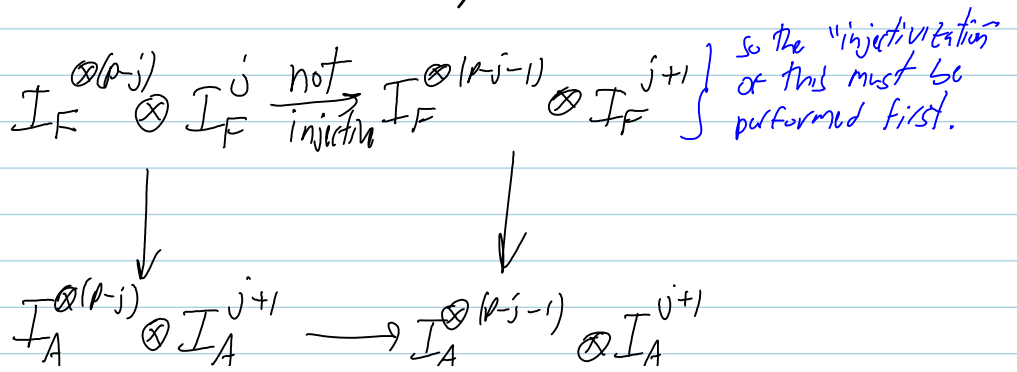 I_F^{⊗(p-j)} ⊗ I_F^j \xrightarrow[injective]{not} I_F^{⊗(p-j-1)} ⊗ I_F^{j+1} } so the "injectivization" of this must be performed first.
↓ ↓
I_A^{⊗(p-j)} ⊗ I_A^{j+1} → I_A^{⊗(p-j-1)} ⊗ I_A^{j+1}